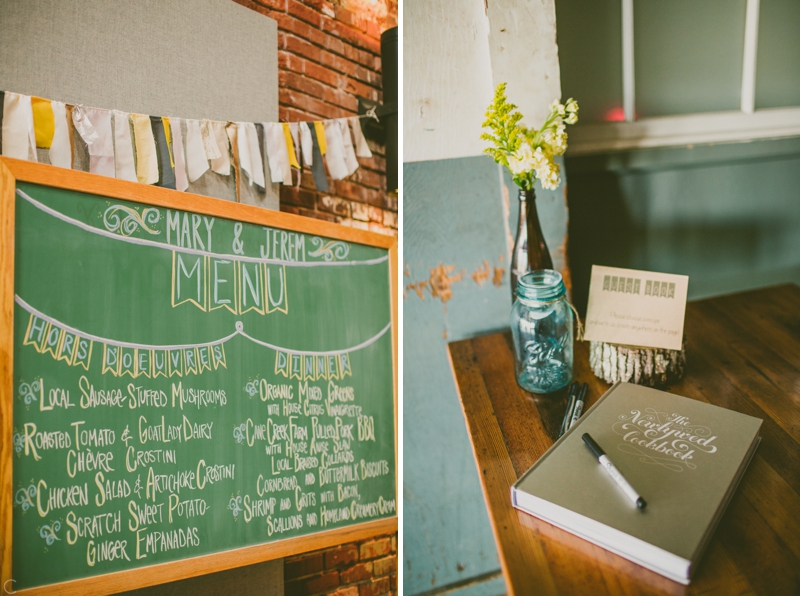 MARY & JEREM
MENU
HORS D'OEUVRES
LOCAL SAUSAGE-STUFFED MUSHROOMS
ROASTED TOMATO & GOATLADY DAIRY
CHÈVRE CROSTINI
CHICKEN SALAD & ARTICHOKE CROSTINI
SCRATCH SWEET POTATO-
GINGER EMPANADAS
DINNER
ORGANIC MIXED GREENS
WITH HOUSE CITRUS VINAIGRETTE
CANE CREEK FARM PULLED PORK BBQ
WITH HOUSE ASIAN SLAW
LOCAL BRAISED COLLARDS
CORNBREAD AND BUTTERMILK BISCUITS
SHRIMP AND GRITS WITH BACON,
SCALLIONS AND HOMELAND CREAMERY CREAM
GUEST BOOK
Ball
The
Newlywed
Cookbook
C